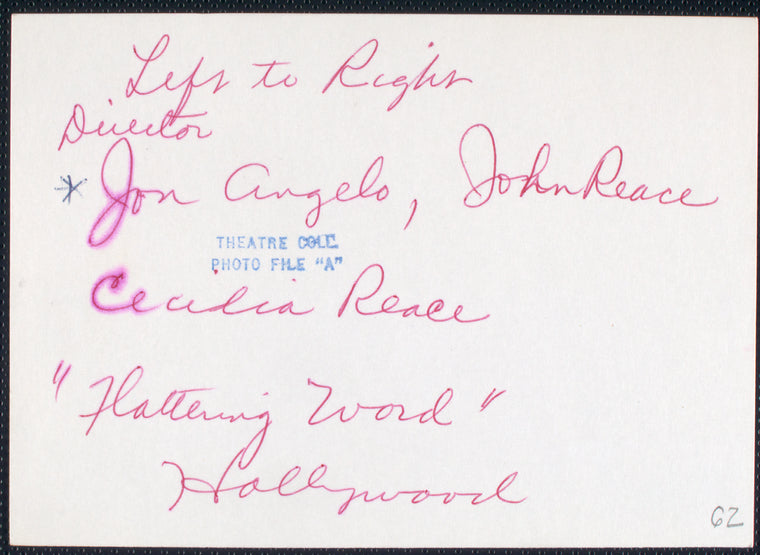 Left to Right
Director
* Jon Angelo, John Reace
THEATRE COLL.
PHOTO FILE "A"
Cecidia Reace
"Flattering Word"
Hollywood
62